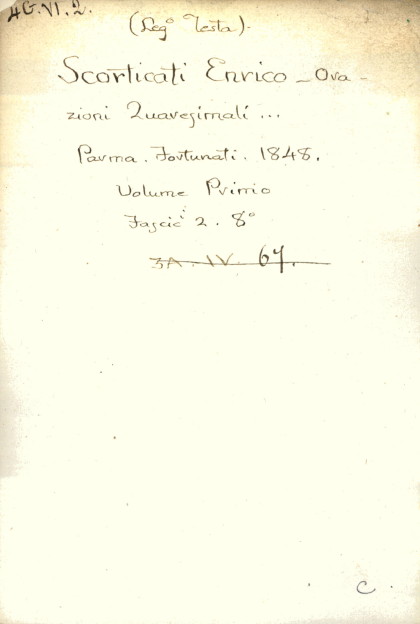 4G.VI.2.
(Leg° Testa).
Scorticati Enrico - Ora -
zioni Quaresimali ...
Parma. Fortunati. 1848.
Volume Primo
Fascic 2. 8°
3A. IV. 67.
C